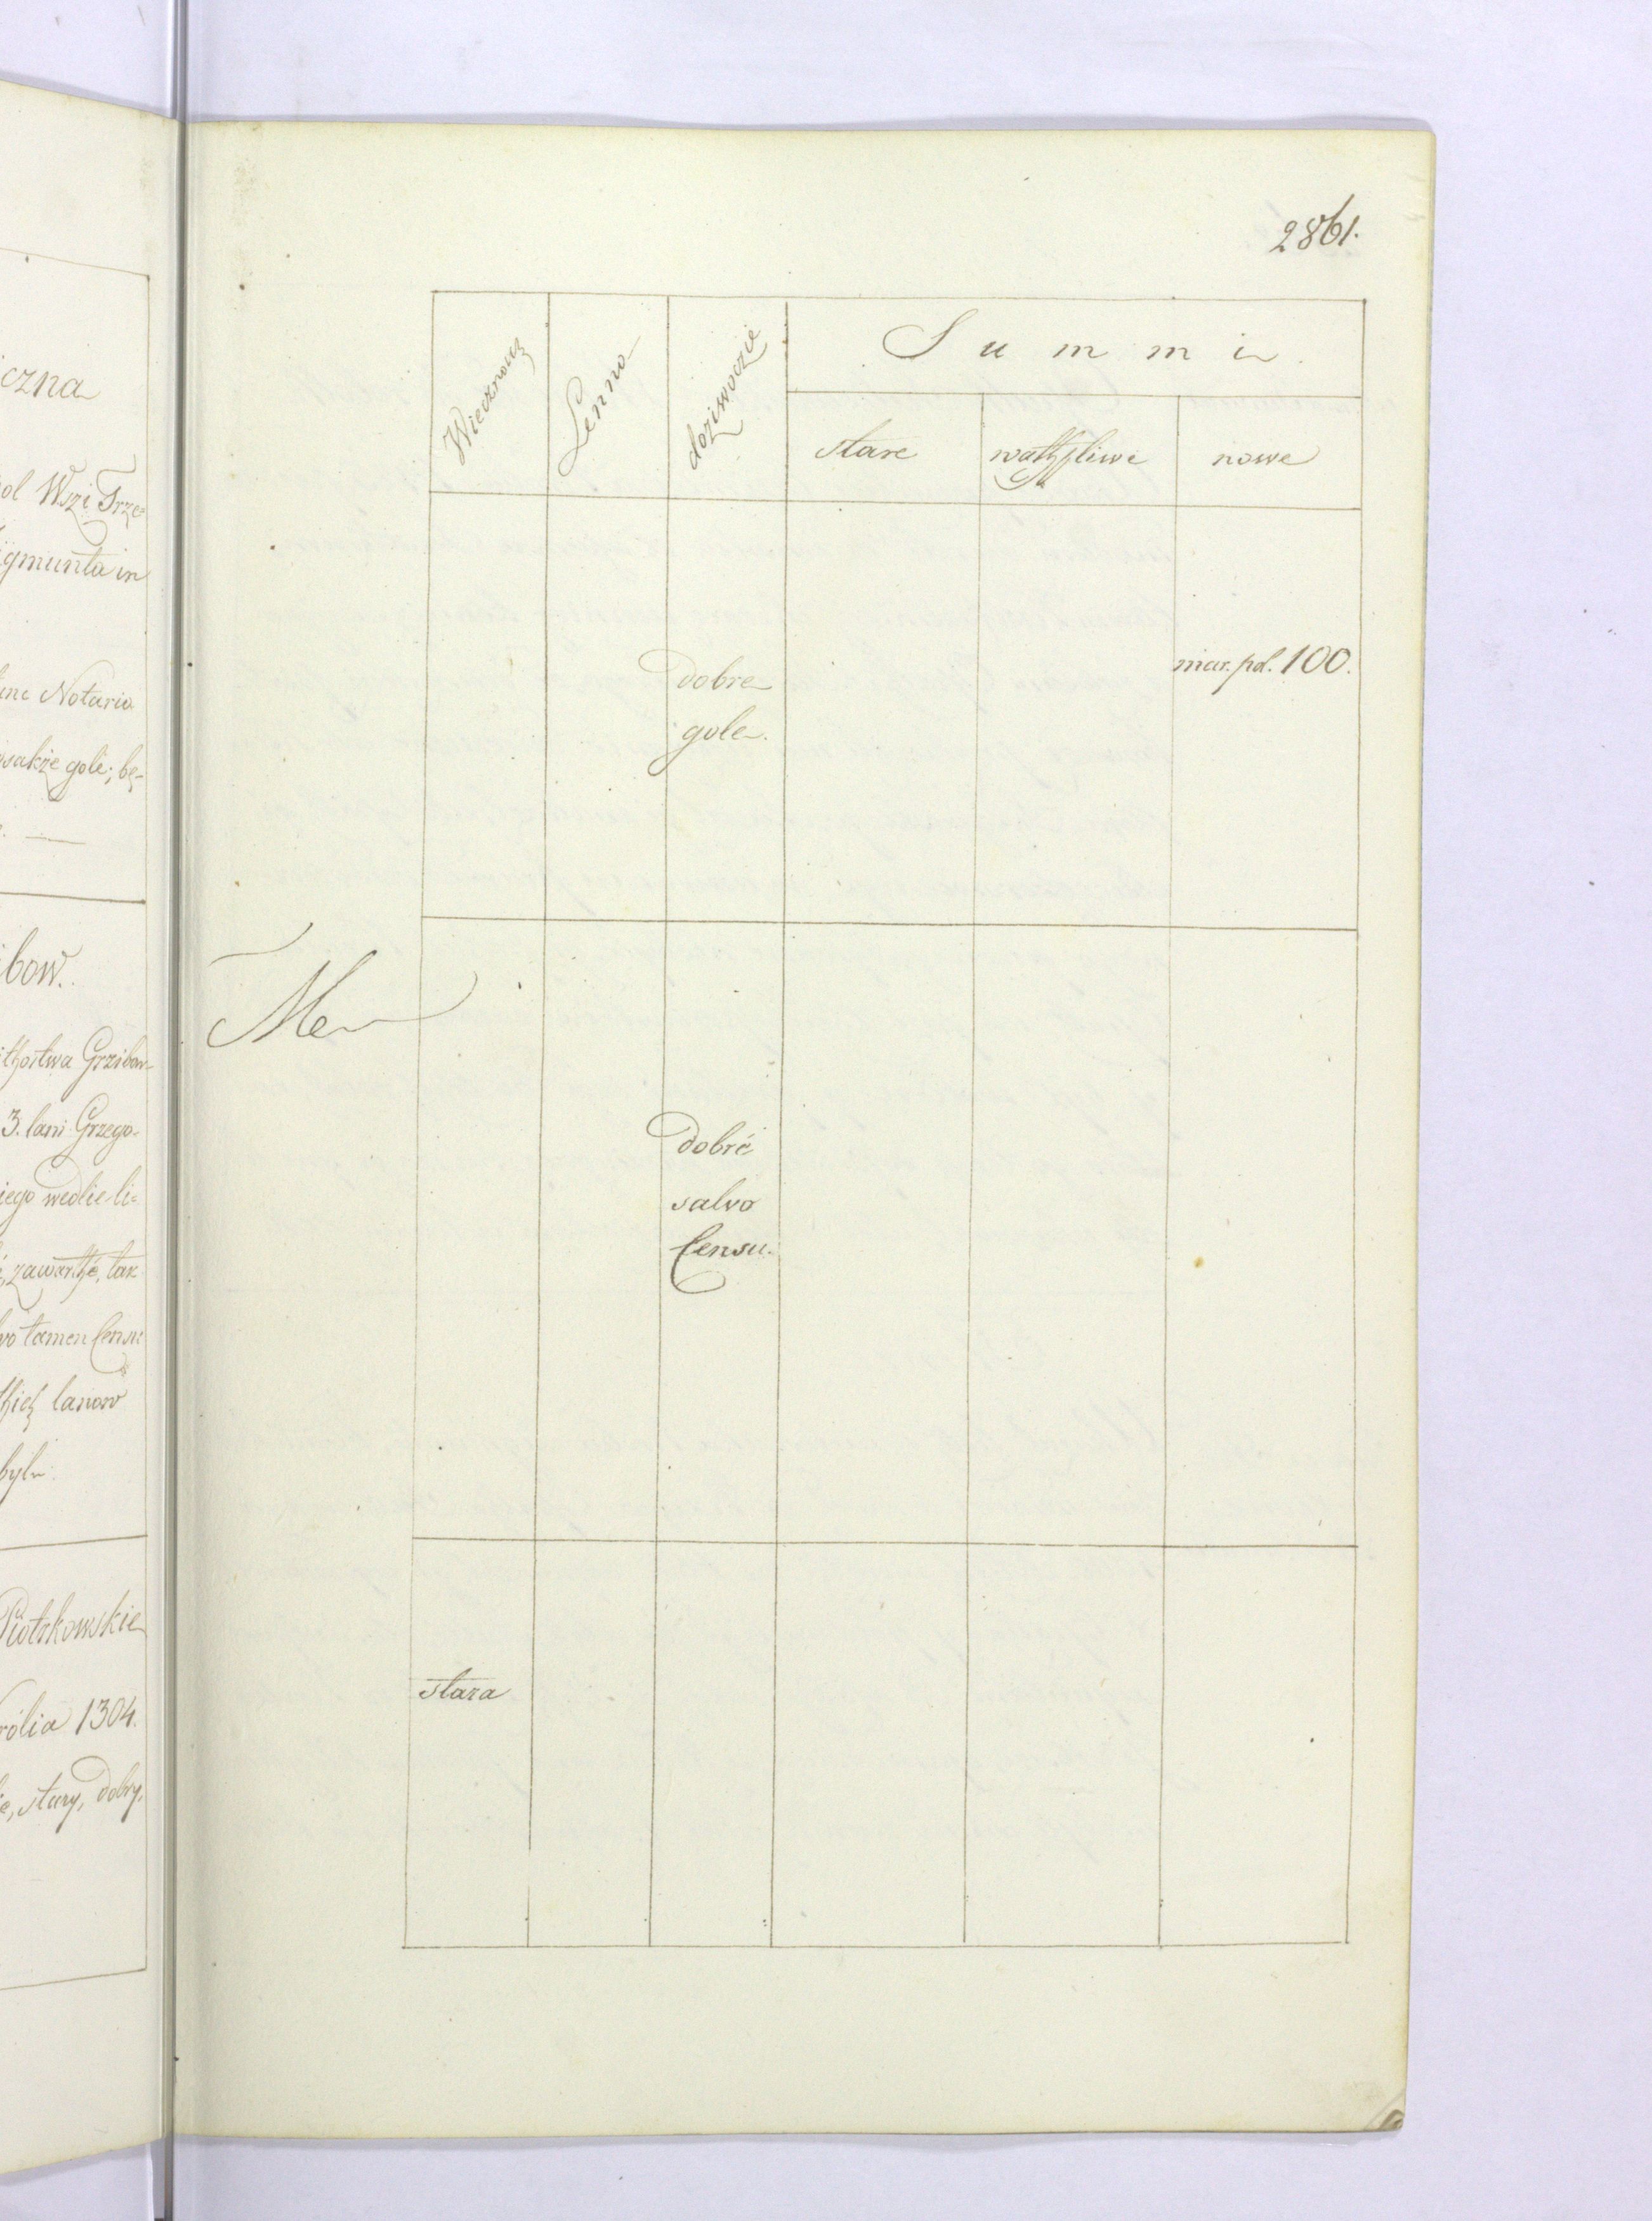 iczna
ol Wszi Trze=
igmunta in
Notario
wsakże gole; bę-
bow.
ithostwa Gzibow-
3. lani Grzego-
iego wedlie li=
zawarthé, tak
vo tamen Censu
thich lanow
byli.
Piotrkowskie
rólia 1304.
ie, stary, dobry,
2861.
Wiecznosci
Lenno
doziwocie
Summi
stare
wathpliwe
nowe
dobre
gole.
mar. pol. 100.
Me
dobré
salvo
Censu.
stara